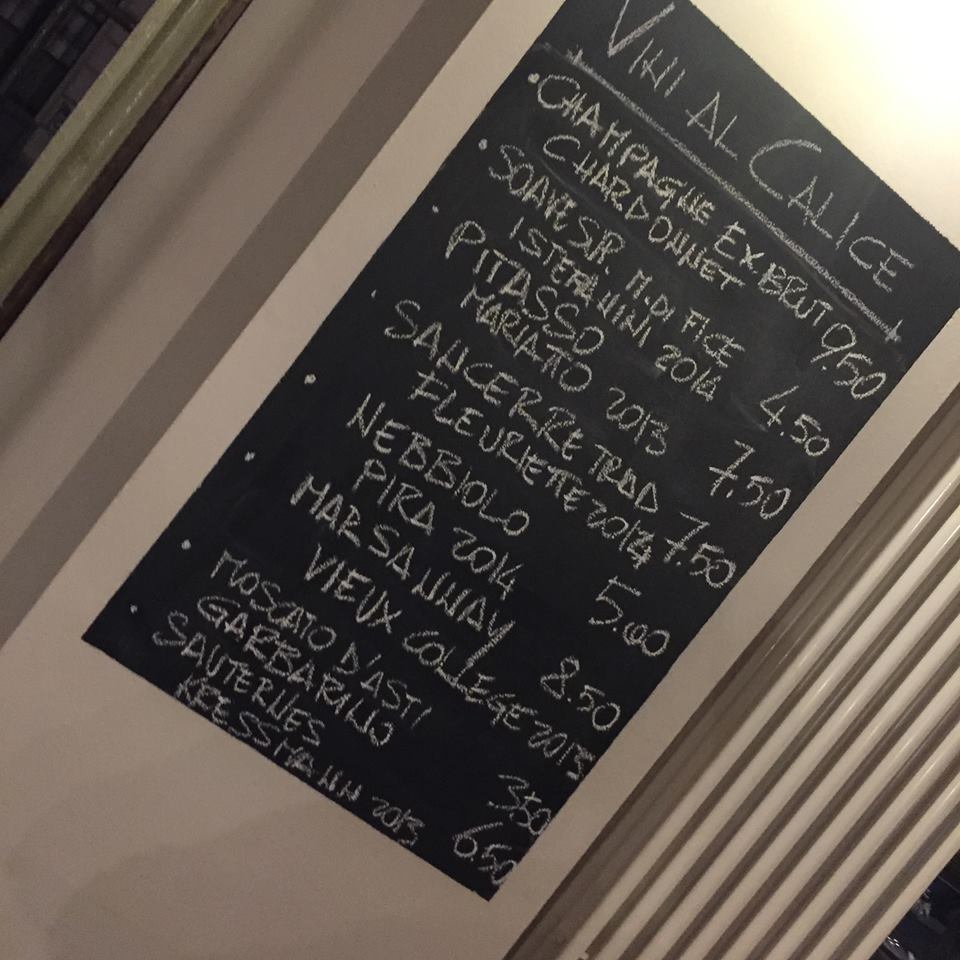 VINI AL CALICE
CHAMPAGNE EX.BRUT 9.50
CHARDONNET
SOAVE SUP. M. DI FICE 4.50
I STEFANINI 2014
PITASSO 7.50
MARIATO 2013
SANCERRE TRAD 7.50
FLEURIETTE 2014
NEBBIOLO 5.00
PIRA 2014
MARSANNAY 8.50
VIEUX COLLEGE 2013
MOSCATO D'ASTI 3.50
GARBARINO
SAUTERNES 6.50
KRESSMANN 2013